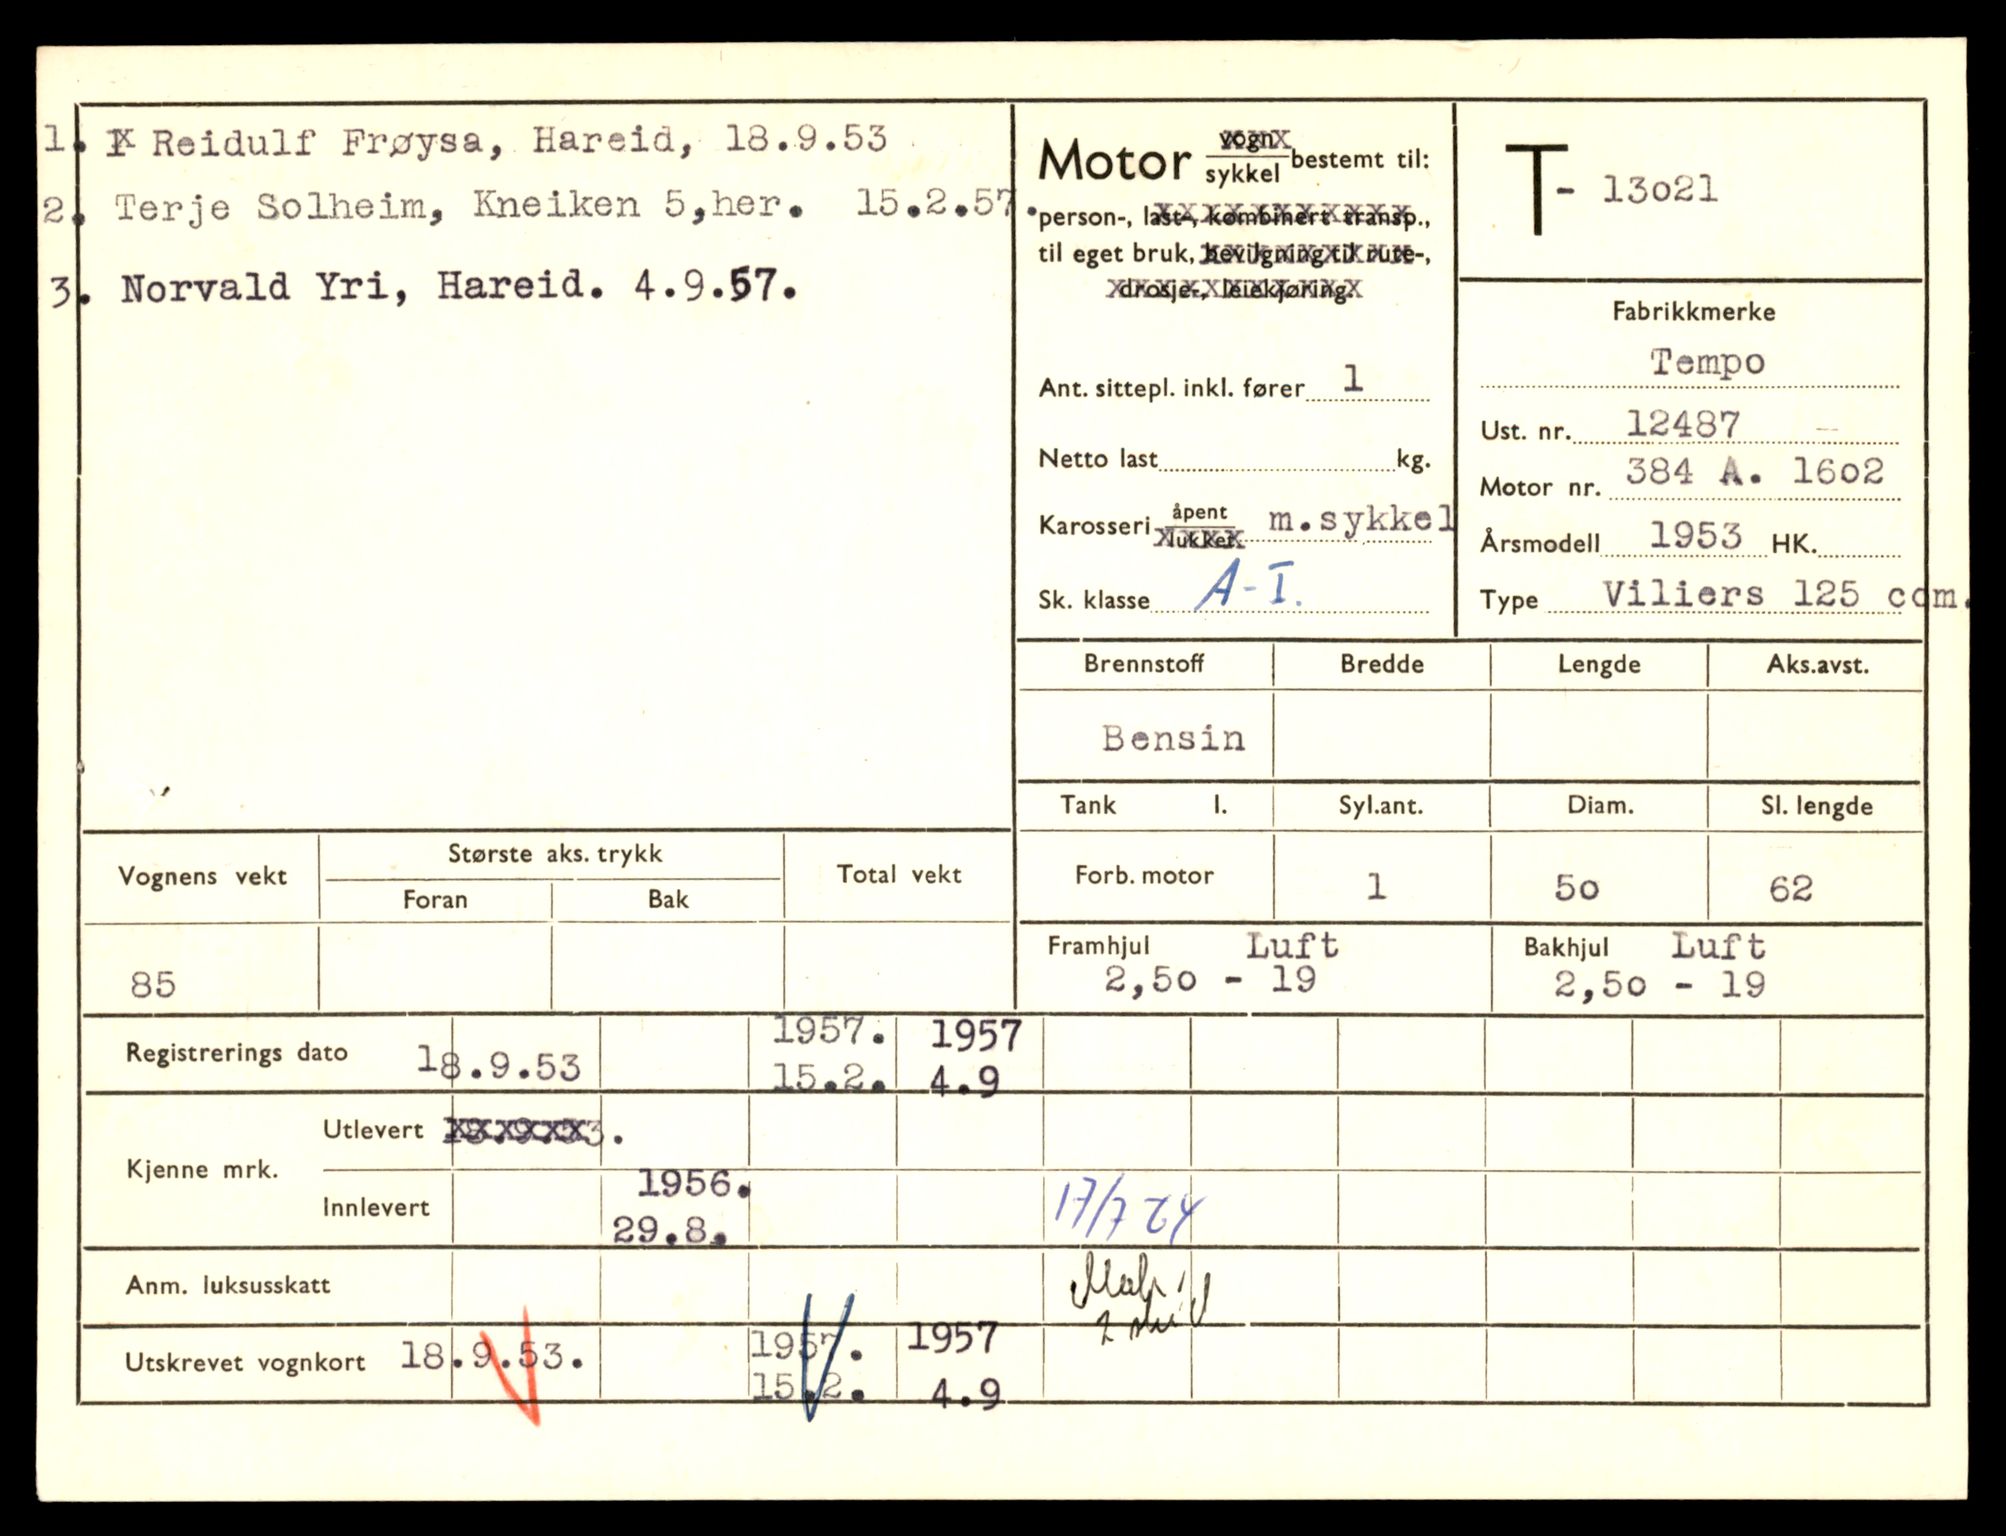 1. Reidulf Frøysa, Hareid, 18.9.53
2. Terje Solheim, Kneiken 5,her. 15.2.57.
3. Norvald Yri, Hareid. 4.9.57.
Motor vogn/sykkel bestemt til:
person-, last-, kombinert transp.,
til eget bruk, bevilgning til rute-,
drosje-, leiekjøring.
Ant. sittepl. inkl. fører 1
Netto last kg.
Karosseri åpent/lukket m.sykkel
Sk. klasse A-I.
T- 13o21
Fabrikkmerke
Tempo
Ust. nr. 12487 -
Motor nr. 384 A. 16o2
Årsmodell 1953 HK.
Type Viliers 125 ccm.
Brennstoff Bredde Lengde Aks.avst.
Bensin
Tank l. Syl.ant. Diam. Sl. lengde
Forb. motor 1 5o 62
Framhjul Luft
2,5o - 19
Bakhjul Luft
2,5o - 19
Vognens vekt Største aks. trykk Total vekt
Foran Bak
85
Registrerings dato 18.9.53 1957. 15.2. 1957 4.9
Kjenne mrk.
Utlevert 18.9.53.
Innlevert 1956. 29.8. 17/7
Anm. luksusskatt
Utskrevet vognkort 18.9.53. 1957. 15.2. 1957 4.9